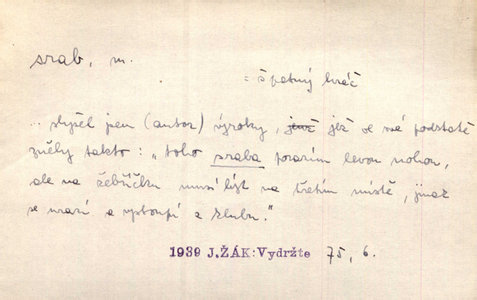 srab, m.
= špatný hráč
... slyšel jsem (autor) výroky, jež ve své podstatě
zněly takto: „toho sraba porazím levou nohou,
ale na žebříčku musí být na třetím místě, jinak
se urazí a vystoupí z klubu."
1939 J.ŽÁK: Vydržte 75, 6.